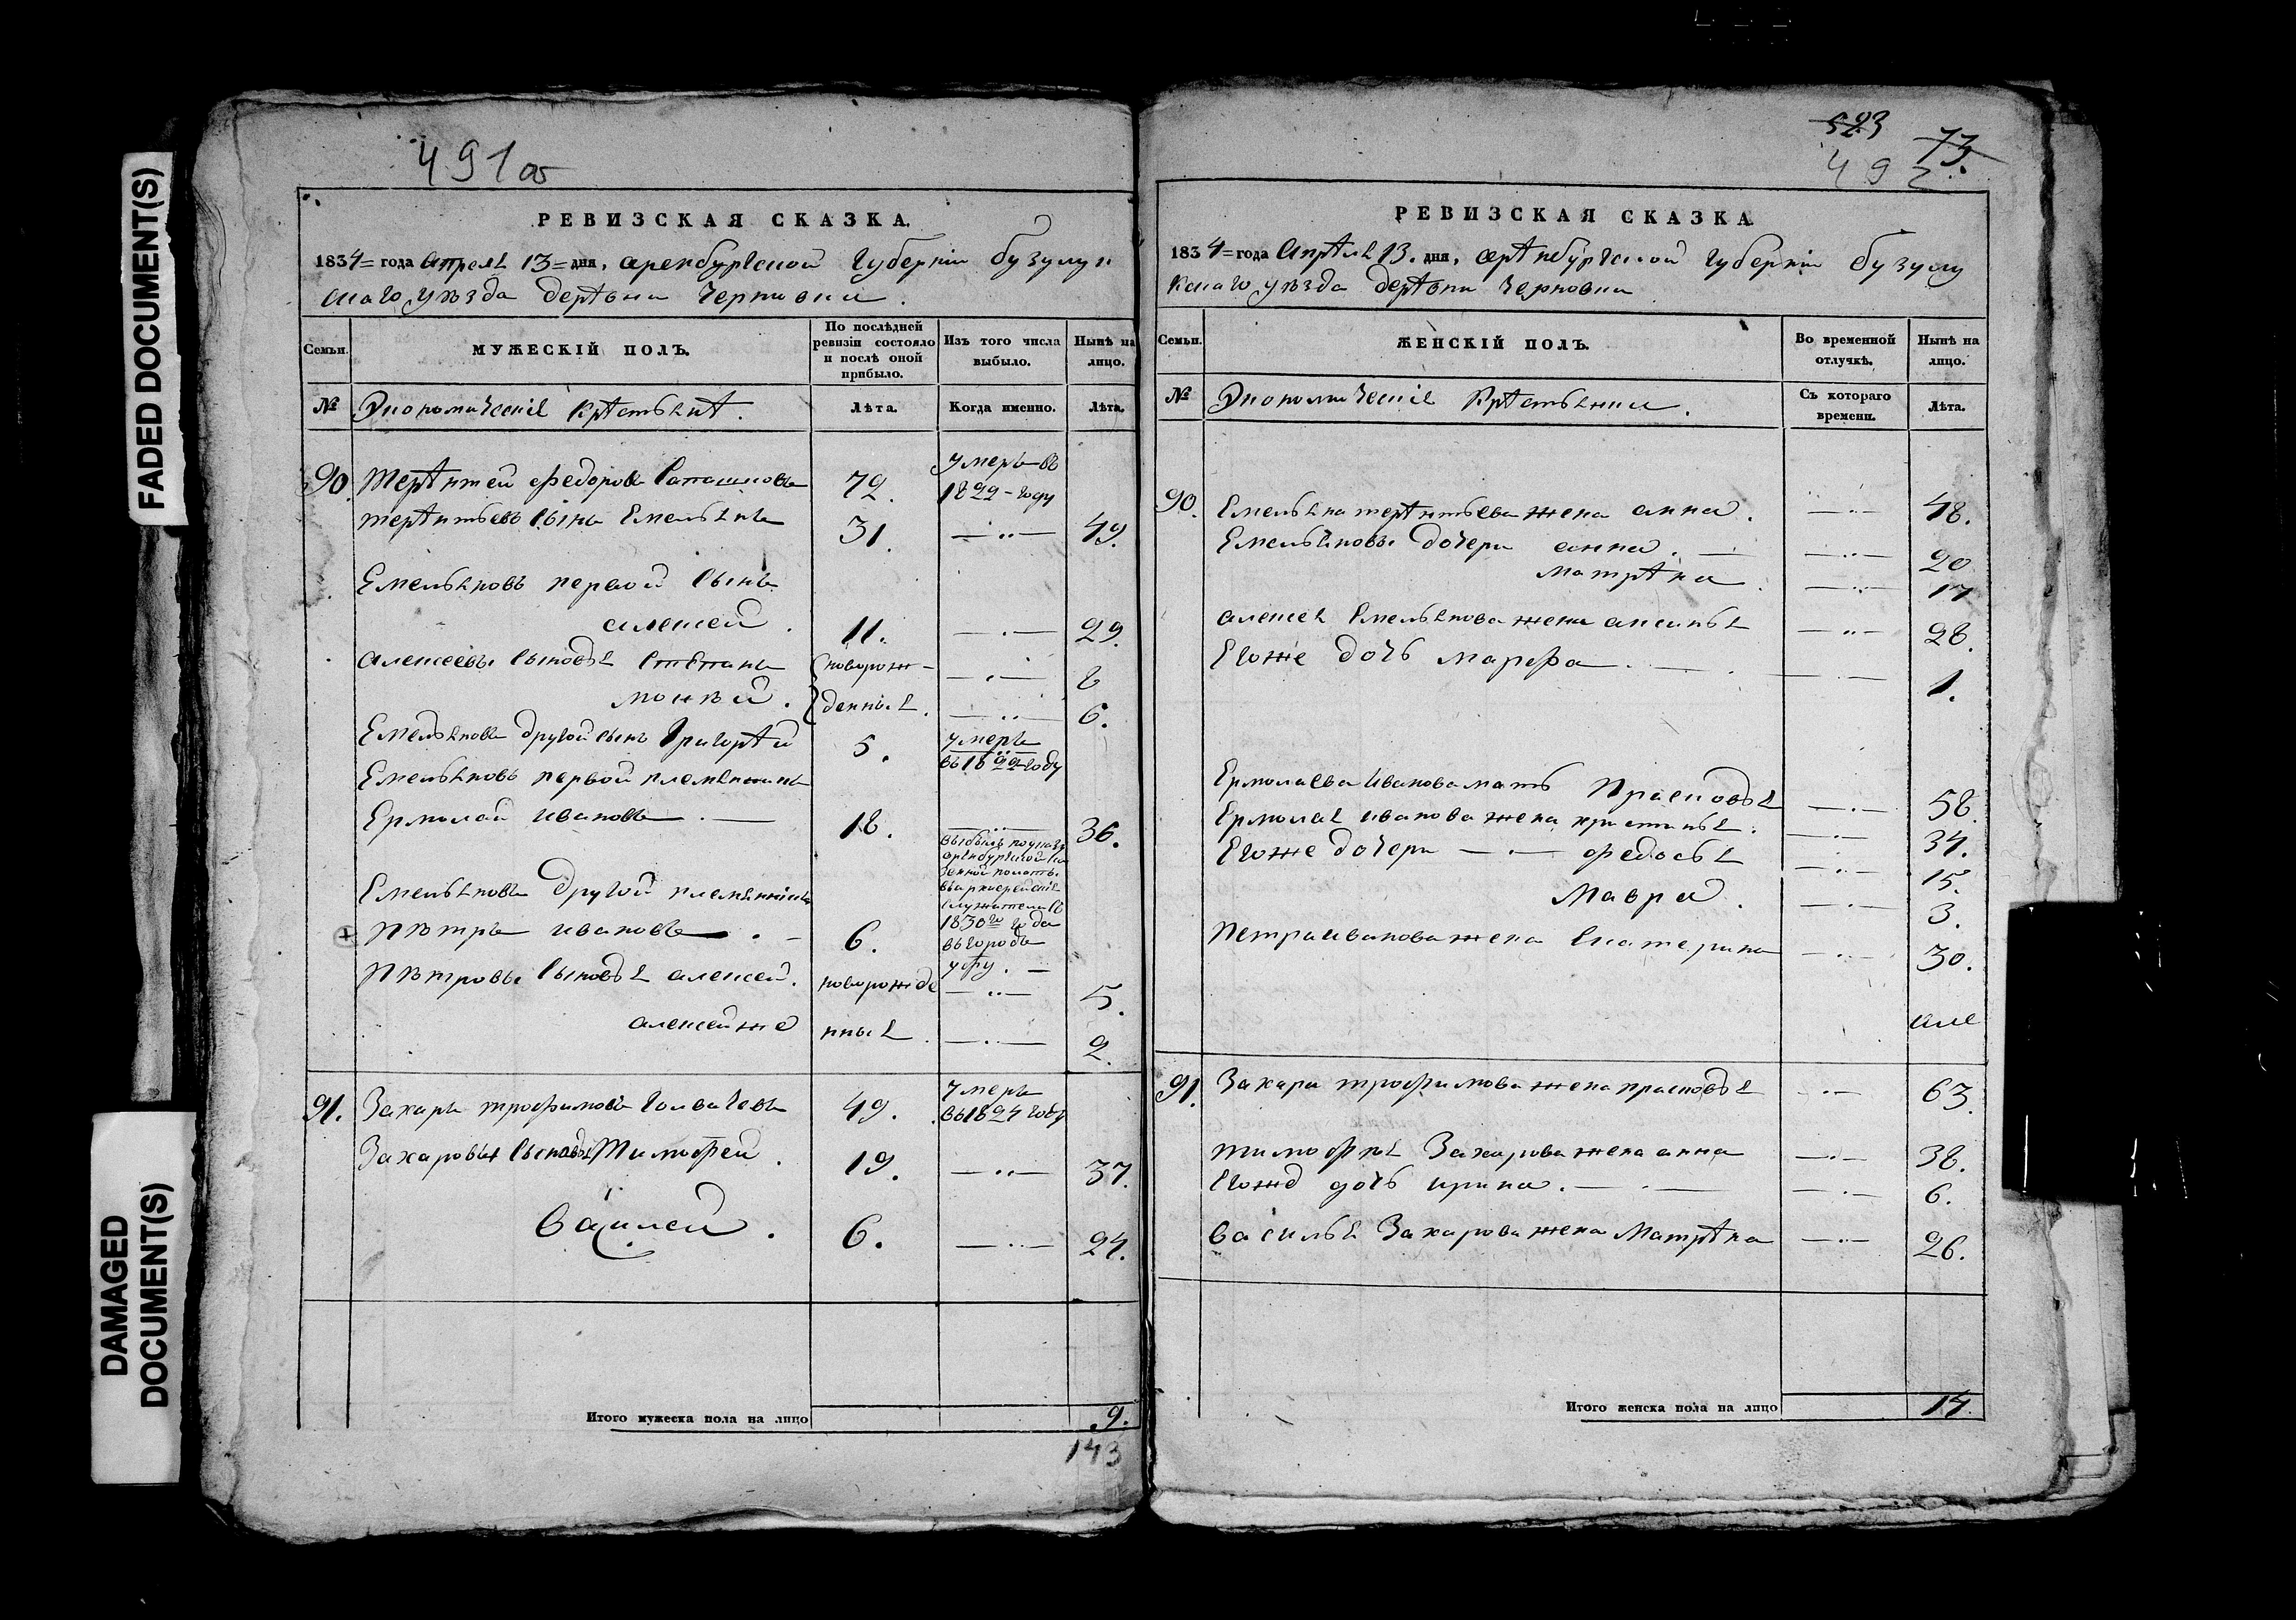 FADED DOCUMENT(S)
DAMAGED
DOCUMENT(S)
491 об
РЕВИЗСКАЯ СКАЗКА.
1834 = года апреля 13 = дня, оренбургской губерніи бузулук
скаго уѣзда деревни Черновки.
Семьи.
МУЖЕСКІЙ ПОЛЪ.
По послѣдней ревизіи состояло и послѣ оной прибыло.
Изъ того числа выбыло.
Нынѣ на лицо.
№
Экономическіе крестьяне.
Лѣта.
Когда именно.
Лѣта.
90. Терентей федоровъ 72. умеръ въ 1829 - году
терентьевъ сынъ Емельянъ 31. 49.
Емельяновъ первой сынъ
алексей. 11. 29.
алексеевы сыновья степанъ новорож- 8
мокѣй. денныя. 6.
Емельяновъ другой сынъ Григорей 5. умеръ въ 1822 году
Емельяновъ первой племянникъ
Ермолай ивановъ 18. 36.
Емельяновъ другой племянникъ
Пѣтръ ивановъ 6. выбылъ по указу оренбургской казенной полаты въ архиерейскія служители съ 1830го года въ городъ уфу.
Пѣтровы сыновья алексей. новорожде 5.
алексей же нныя. 2.
91. Захаръ трофимовъ 49. умеръ въ 1824 году
Захаровы сыновья Тимофей. 19. 37.
василей. 6. 24.
Итого мужеска пола на лицо 9.
143
523 73.
492
РЕВИЗСКАЯ СКАЗКА
1834 = года апреля 13. дня, оренбургской губерніи бузулу
кскаго уѣзда деревни Черновки
Семьи.
ЖЕНСКІЙ ПОЛЪ.
Во временной отлучкѣ.
Нынѣ на лицо.
№
Экономическіе крестьянки.
Съ котораго времени.
Лѣта.
90. Емельяна терентьева жена анна. 48.
Емельяновы дочери анна. 20
матрена. 17
алексея Емельянова жена аксинья 28.
Егоже дочь марфа. 1.
Ермолаева Иванова мать Прасковья 58.
Ермолая иванова жена христинья. 34.
Егоже дочери федосья 15.
Мавра. 3.
Петра иванова жена Екатерина 30.
91. Захара трофимова жена прасковья 63.
тимофея Захарова жена анна 38.
Егоже дочь ирина. 6.
василья Захарова жена матрена 26.
Итого женска пола на лицо 14.